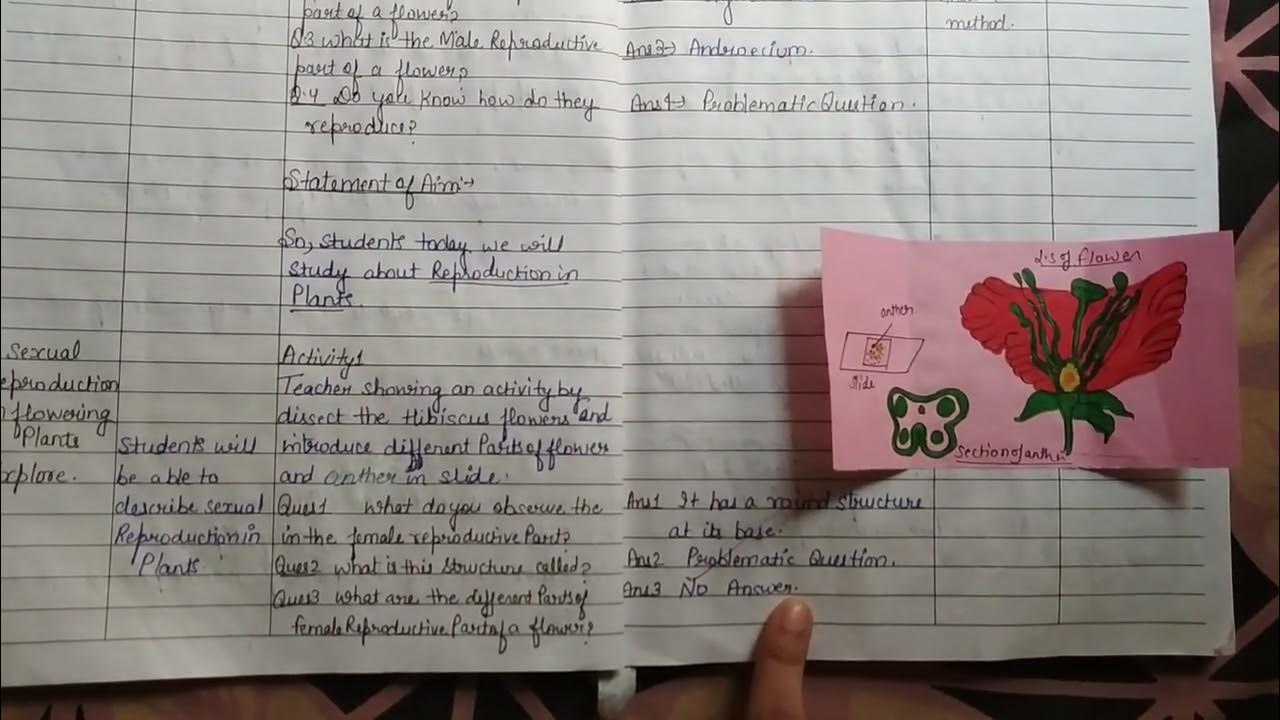 part of a flower?
Q3 What is the Male Reproductive
part of a flower?
Q.4 Do you Know how do they
reproduce?
Statement of Aim:→
So, Students today we will
study about Reproduction in
Plants.
method.
Ans3→ Androecium.
Ans4→ Problematic Quution.
sexual
eproduction
flowering
Plants
xplore.
Students will
be able to
describe sexual
Reproduction in
Plants.
Activity1
Teacher showing an activity by
dissect the Hibiscus flowers and
introduce different Parts of flower
and anther in slide.
Ques1 What do you observe the
in the female reproductive Part?
Ques2 What is this structure called?
Ques3 What are the different Parts of
female Reproductive Part of a flower?
L.S of flower
anther
slide
Section of anthe
Ans1 It has a round structure
at its base.
Ans2 Problematic Question.
Ans3 No Answer.